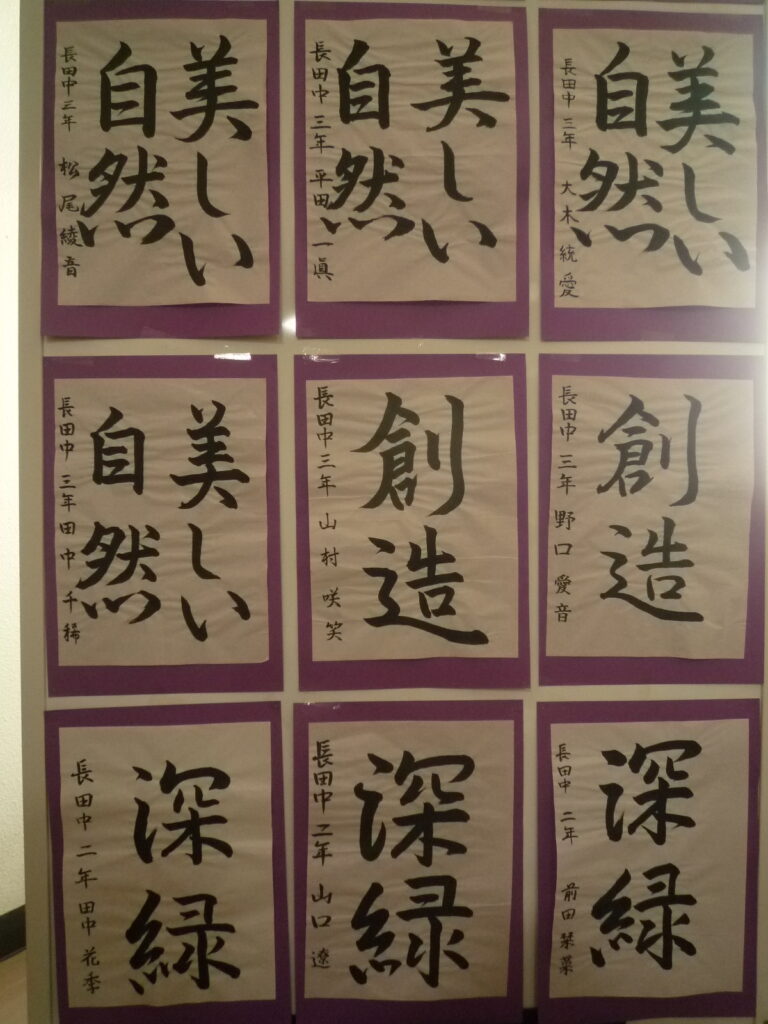 美しい
自然
長田中三年 松尾綾音
美しい
自然
長田中 三年 平田 一眞
美しい
自然
長田中 三年 大木統愛
美しい
自然
長田中 三年 田中 千稀
創造
長田中 三年 山村 咲笑
創造
長田中 三年 野口 愛音
深緑
長田中 二年 田中 花季
深緑
長田中 二年 山口 遼
深緑
長田中 二年 前田 栞菜